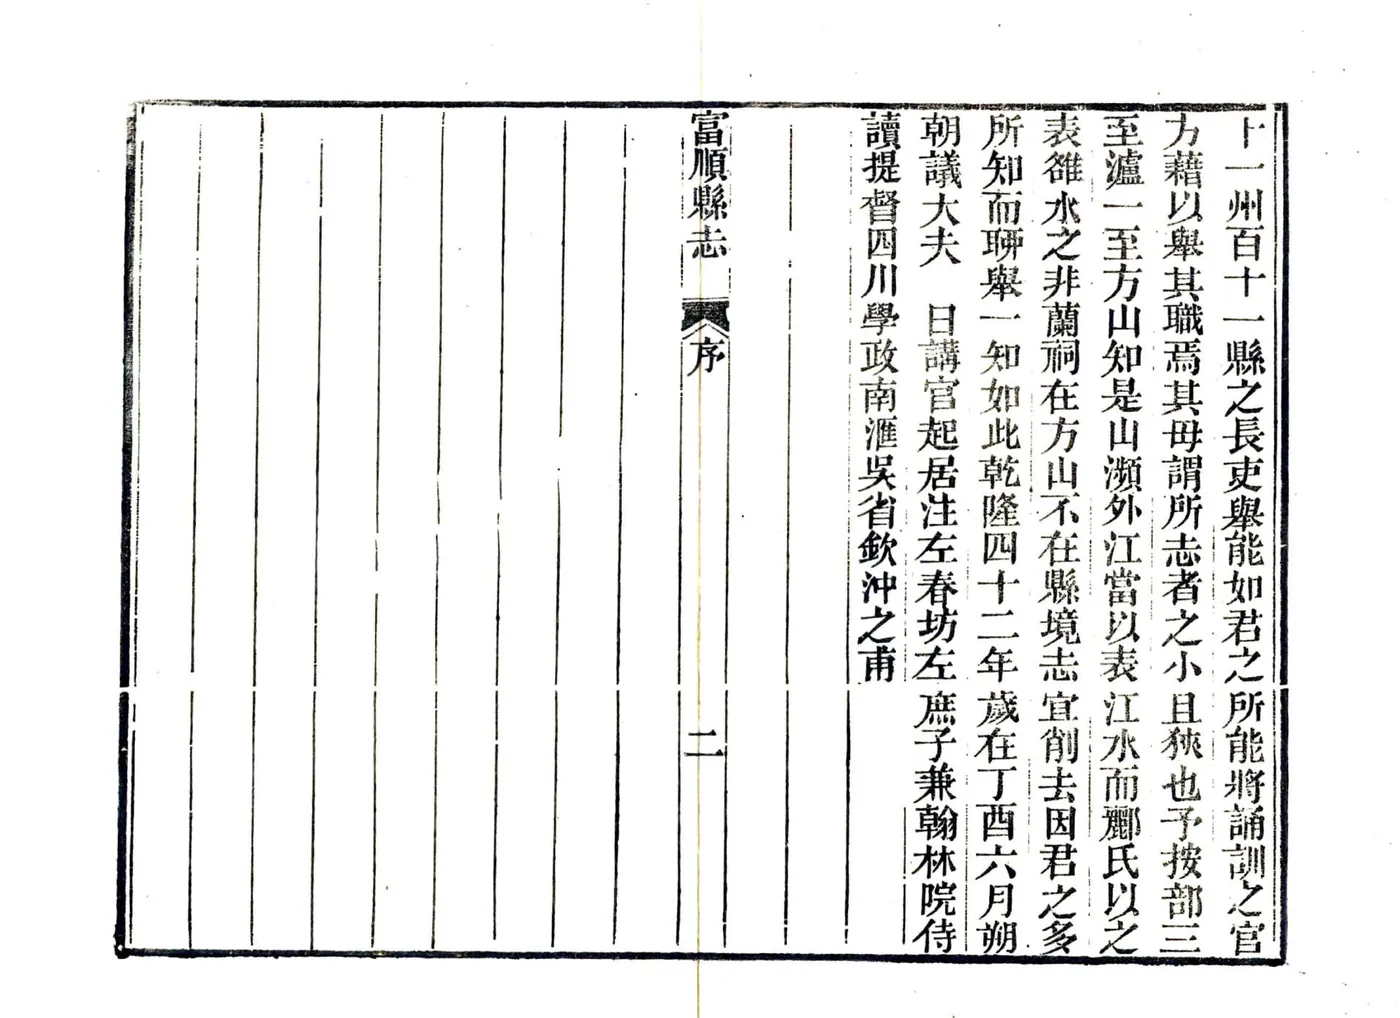 十一州百十一縣之長吏舉能如君之所能將誦訓之官
方藉以舉其職焉其毋謂所志者之小且狹也予按部三
至瀘一至方山知是山瀕外江當以表江水而酈氏以之
表雒水之非蘭祠在方山不在縣境志宜削去因君之多
所知而聊舉一知如此乾隆四十二年歲在丁酉六月朔
朝議大夫 日講官起居注左春坊左庶子兼翰林院侍
讀提督四川學政南滙吳省欽沖之甫
富順縣志 序 二